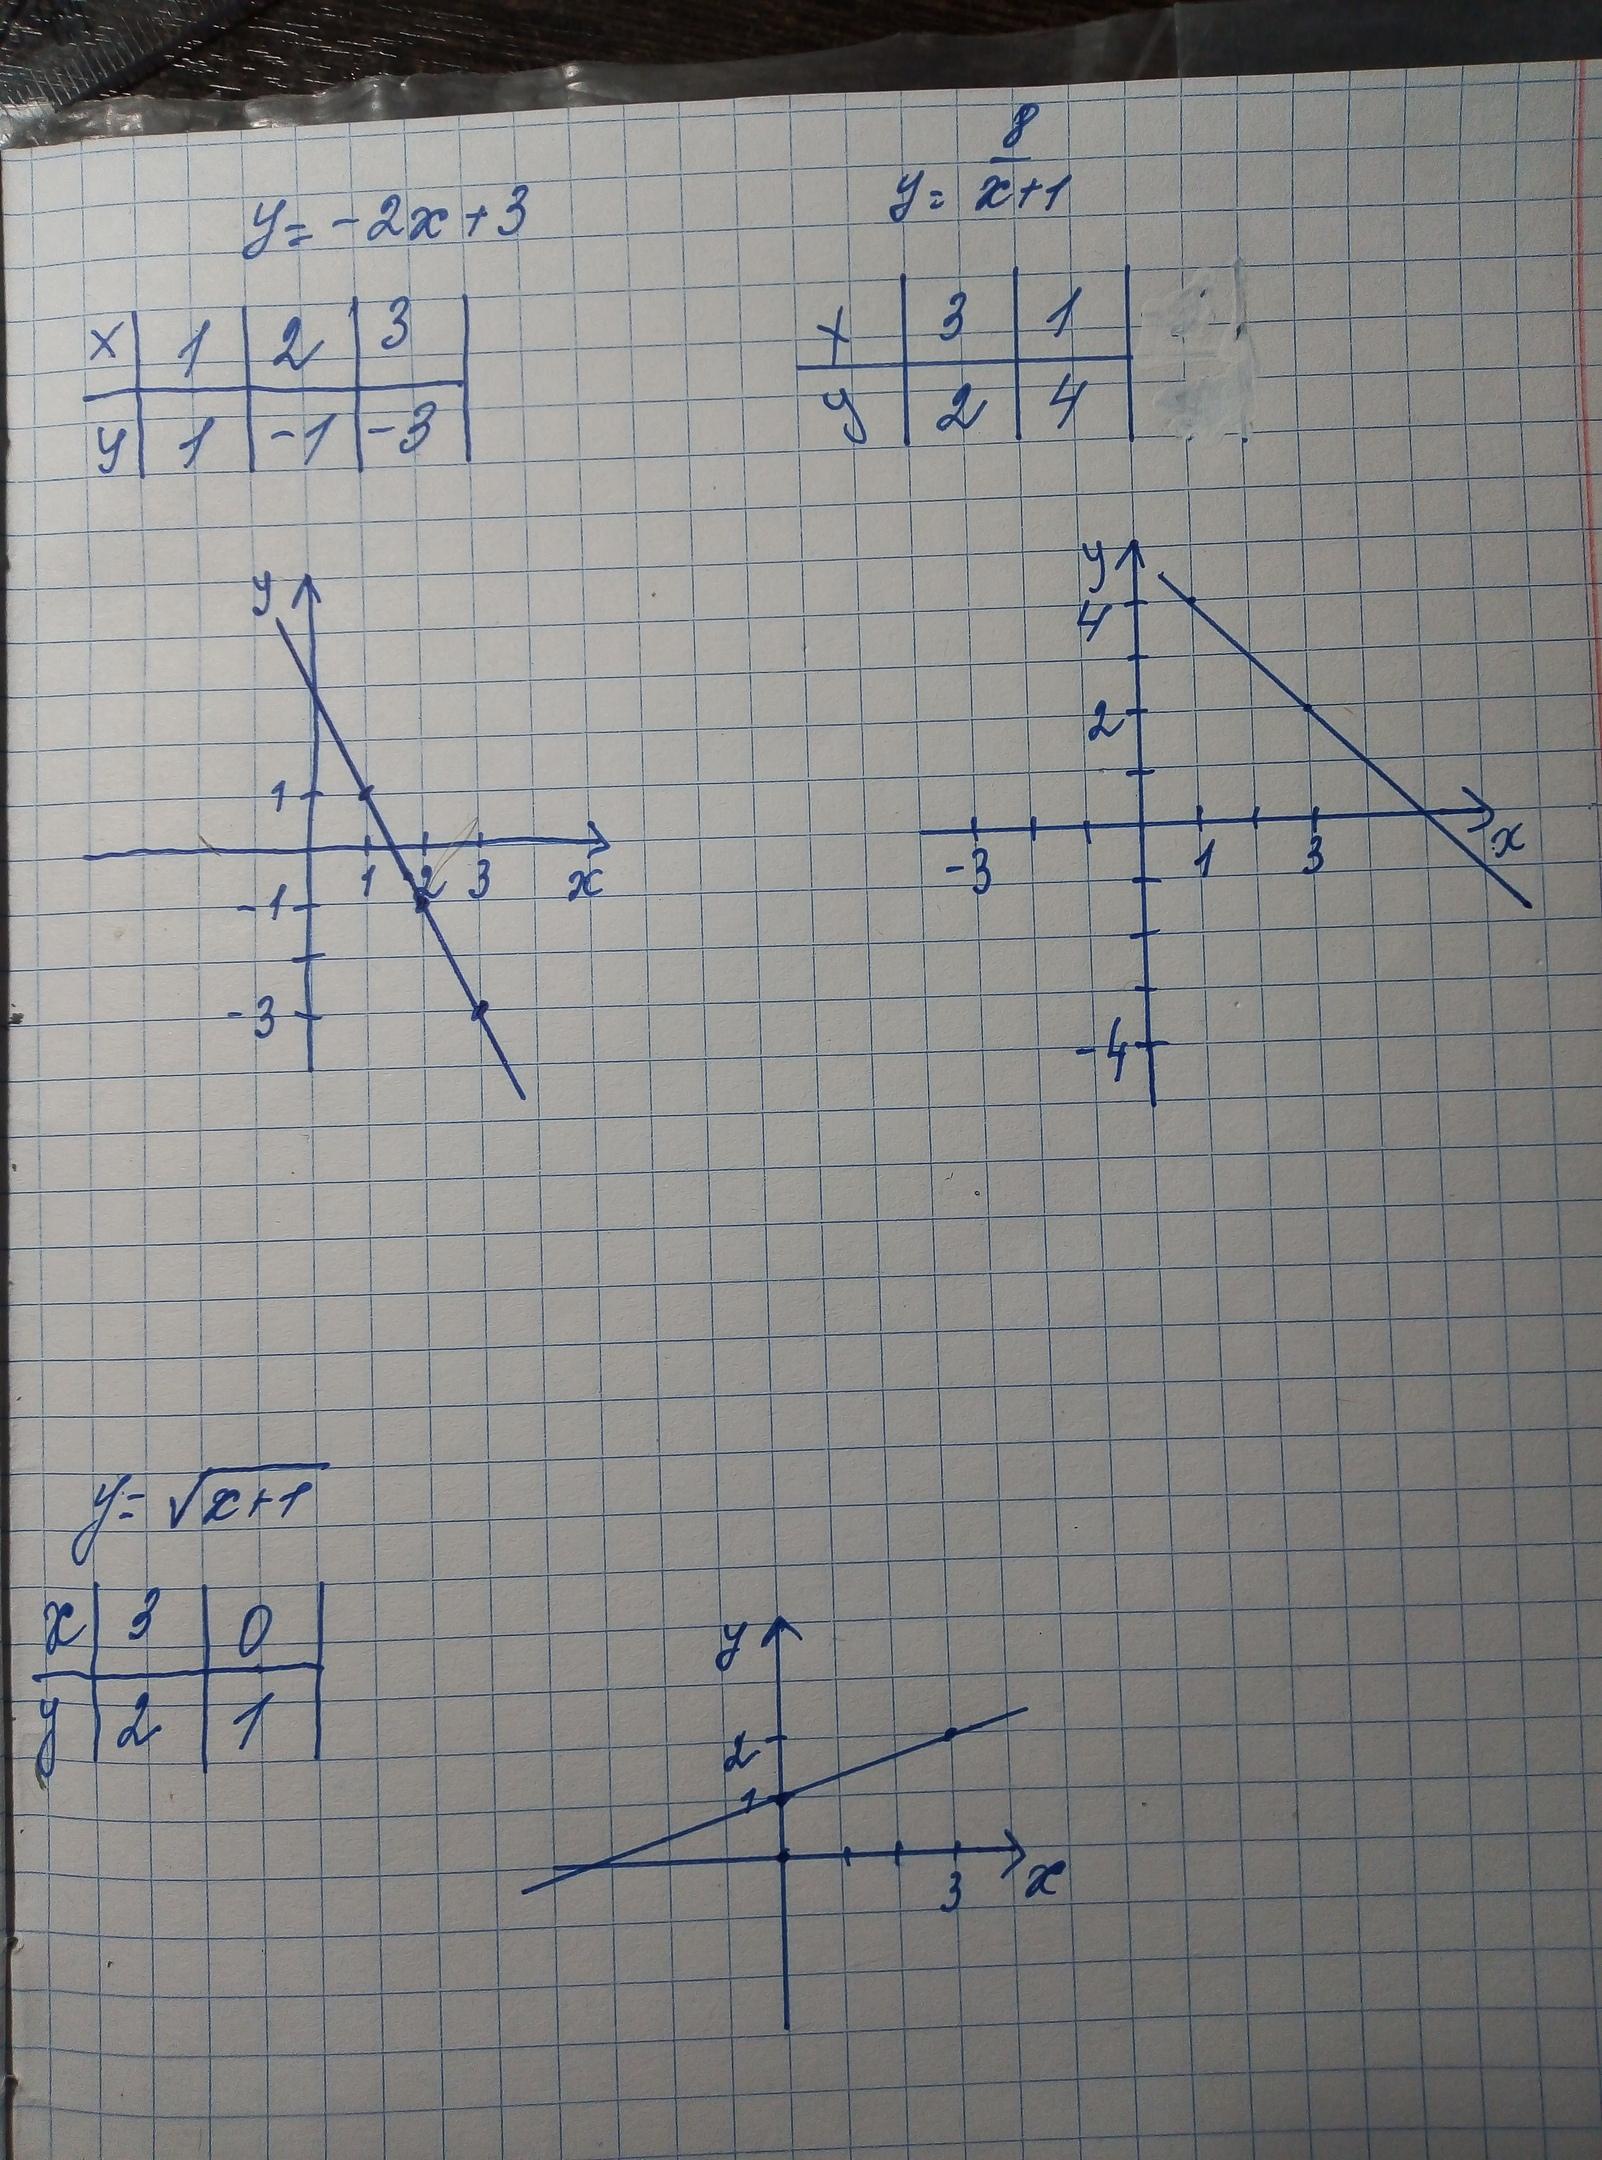 y = -2x + 3
x 1 2 3
y 1 -1 -3
y
1
1 2 3 x
-1
-3
8
y = x+1
x 3 1
y 2 4
y
4
2
-3 1 3 x
-4
y = √x+1
x 3 0
y 2 1
y
2
1
3 x